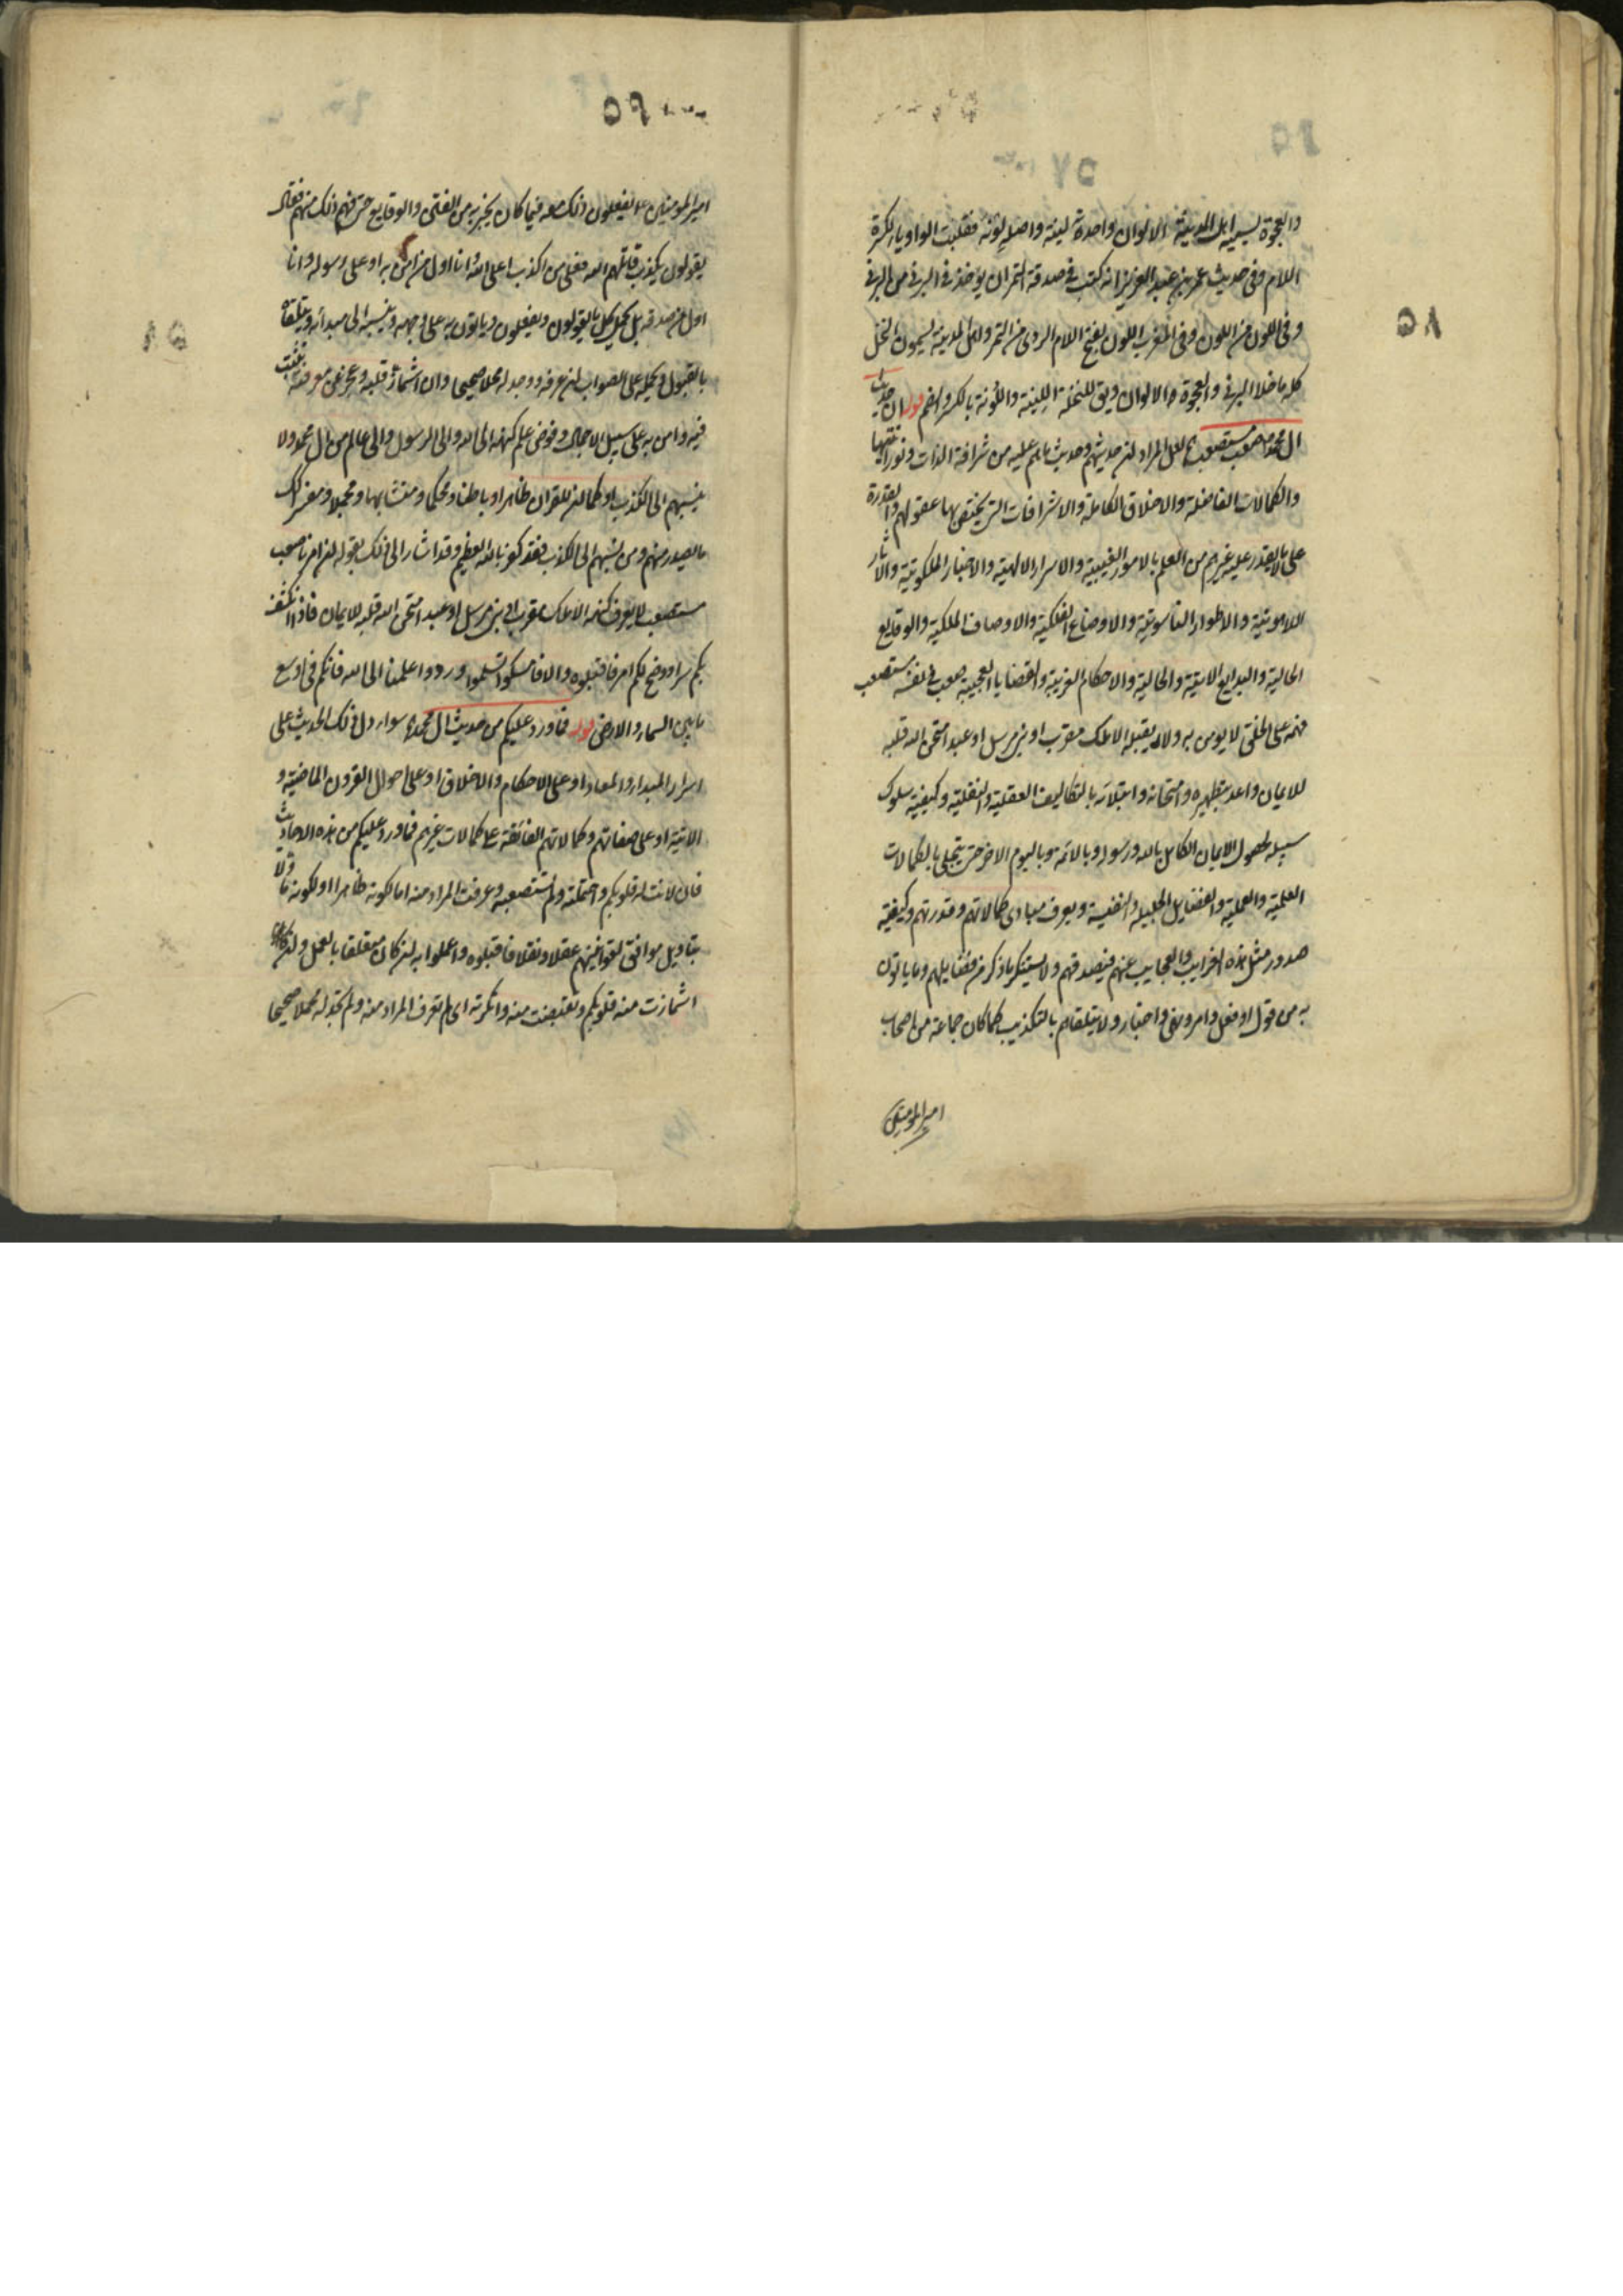 والعجوة يسميه اهل المدينة الالوان واحدة لينة واصله لونة فقلبت الواو ياء لكسرة
اللام وفى حديث عمر بن عبد العزيز انه كتب فى صدقة التمر ان يؤخذ فى البرنى من البرنى
وفى اللون من اللون وفى المغرب اللون بفتح اللام الردى من التمر واهل المدينة يسمون النخل
كله ما خلا البرنى والعجوة الالوان ويق للنخلة اللينة واللونة بالكسر والضم قوله ان حديث
ال محمد صعب مستصعب لعل المراد ان حديثهم وحديث ما هم عليه من شرافة الذات ونورانيتها
والكمالات الفاضلة والاخلاق الكاملة والاشراقات التى يختص بها عقولهم والقدرة
على ما لا يقدر عليه غيرهم من العلم بالامور الغيبية والاسرار الالهية والاخبار الملكوتية والاثار
اللاهوتية والاطوار الناسوتية والاوضاع الفلكية والاوصاف الملكية والوقايع
الخالية والبدايع الاتية والحالية والاحكام الغريبة والقضايا العجيبة صعب فى نفسه مستصعب
فهمه على الخلق لا يومن به ولا يقبله الا ملك مقرب او نبى مرسل او عبد امتحن الله قلبه
للايمان واعد بتطهيره وامتحانه وابتلائه بالتكاليف العقلية والنقلية وكيفية سلوك
سبيله لحصول الايمان الكامل بالله ورسوله وبالائمة وباليوم الاخر حتى يتحلى بالكمالات
العلمية والعملية والفضايل الجليلة والنفيسة ويعرف مبادى كمالاتهم وقدرتهم وكيفية
صدور مثل هذه الغرايب والعجايب عنهم فيصدقهم ولا يستنكر ما ذكر من فضايلهم وما ياتون
به من قول او فعل وامر ونهى واخبار ولا يتلقاهم بالتكذيب كما كان جماعة من اصحاب
امير المؤمنين
امير المؤمنين ع يفعلون ذلك معه فيما كان يخبر به من الفتن والوقايع حتى فهم ذلك منهم فقال
يقولون يكذب قاتلهم الله فعلى من اكذب اعلى الله وانا اول من امن به او على رسوله وانا
اول من صدقه بل يحمل كل ما يقولون ويفعلون وياتون به على وجهه وينسبه الى مبدائه ويتلقاه
بالقبول ويحمله على الصواب ان عرفه ووجد له محملا صحيحا وان اشمأز قلبه وعجز عن معرفته تثبت
فيه وامن به على سبيل الاجمال وفوض علم كنهه الى الله والى الرسول والى عالم من ال محمد ولا
ينسبهم الى الكذب اذ كما ان للقران ظاهرا وباطنا ومحكما ومتشابها ومجملا ومفسرا كذلك
ما يصدر منهم ومن ينسبهم الى الكذب فقد كفر بالله العظيم وقد اشار الى ذلك بقوله ان امرنا صعب
مستصعب لا يعرف كنهه الا ملك مقرب او نبى مرسل او عبد امتحن الله قلبه للايمان فاذا انكشف
لكم سر او وضح لكم امر فاقبلوه والا فامسكوا تسلموا وردوا علمنا الى الله فانكم فى اوسع
ما بين السماء والارض قوله فما ورد عليكم من حديث ال محمد سواء دل ذلك الحديث على
اسرار المبداء والمعاد او على الاحكام والاخلاق او على احوال القرون الماضية و
الاتية او على صفاتهم وكمالاتهم الفائقة على كمالات غيرهم فما ورد عليكم من هذه الاحاديث
فان لانت له قلوبكم واحتملته ولم تستصعبه وعرفت المراد منه اما لكونه ظاهرا او لكونه ماولا
بتاويل موافق لقوانينهم عقلا ونقلا فاقبلوه واعملوا به ان كان متعلقا بالعمل وان كان
اشمأزت منه قلوبكم وتقبضت منه وانكرته اى لم تعرف المراد منه ولم تجد له محملا صحيحا